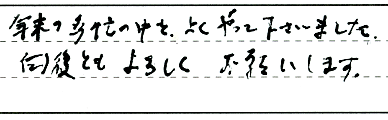 年末の多忙の中を、よくやって下さいました。
今後ともよろしくお願いします。